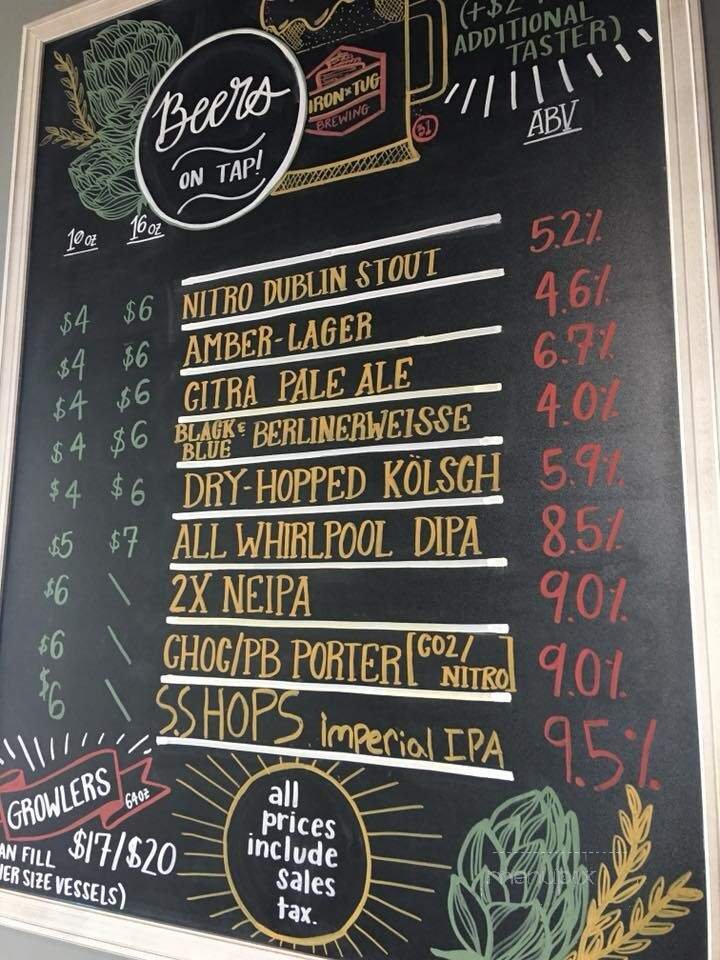 (+$2
ADDITIONAL
TASTER)
Beers
ON TAP!
IRON×TUG
BREWING
ABV
10 oz 16 oz
$4 $6 NITRO DUBLIN STOUT 5.2%
$4 $6 AMBER-LAGER 4.6%
$4 $6 CITRA PALE ALE 6.7%
$4 $6 BLACK & BLUE BERLINERWEISSE 4.0%
$4 $6 DRY-HOPPED KÖLSCH 5.9%
$5 $7 ALL WHIRLPOOL DIPA 8.5%
$6 \ 2X NEIPA 9.0%
$6 \ CHOC/PB PORTER [CO2/NITRO] 9.0%
$6 \ S.S HOPS imperial IPA 9.5%
GROWLERS 64oz
AN FILL $17/$20
ER SIZE VESSELS)
all
prices
include
sales
tax.
menupix